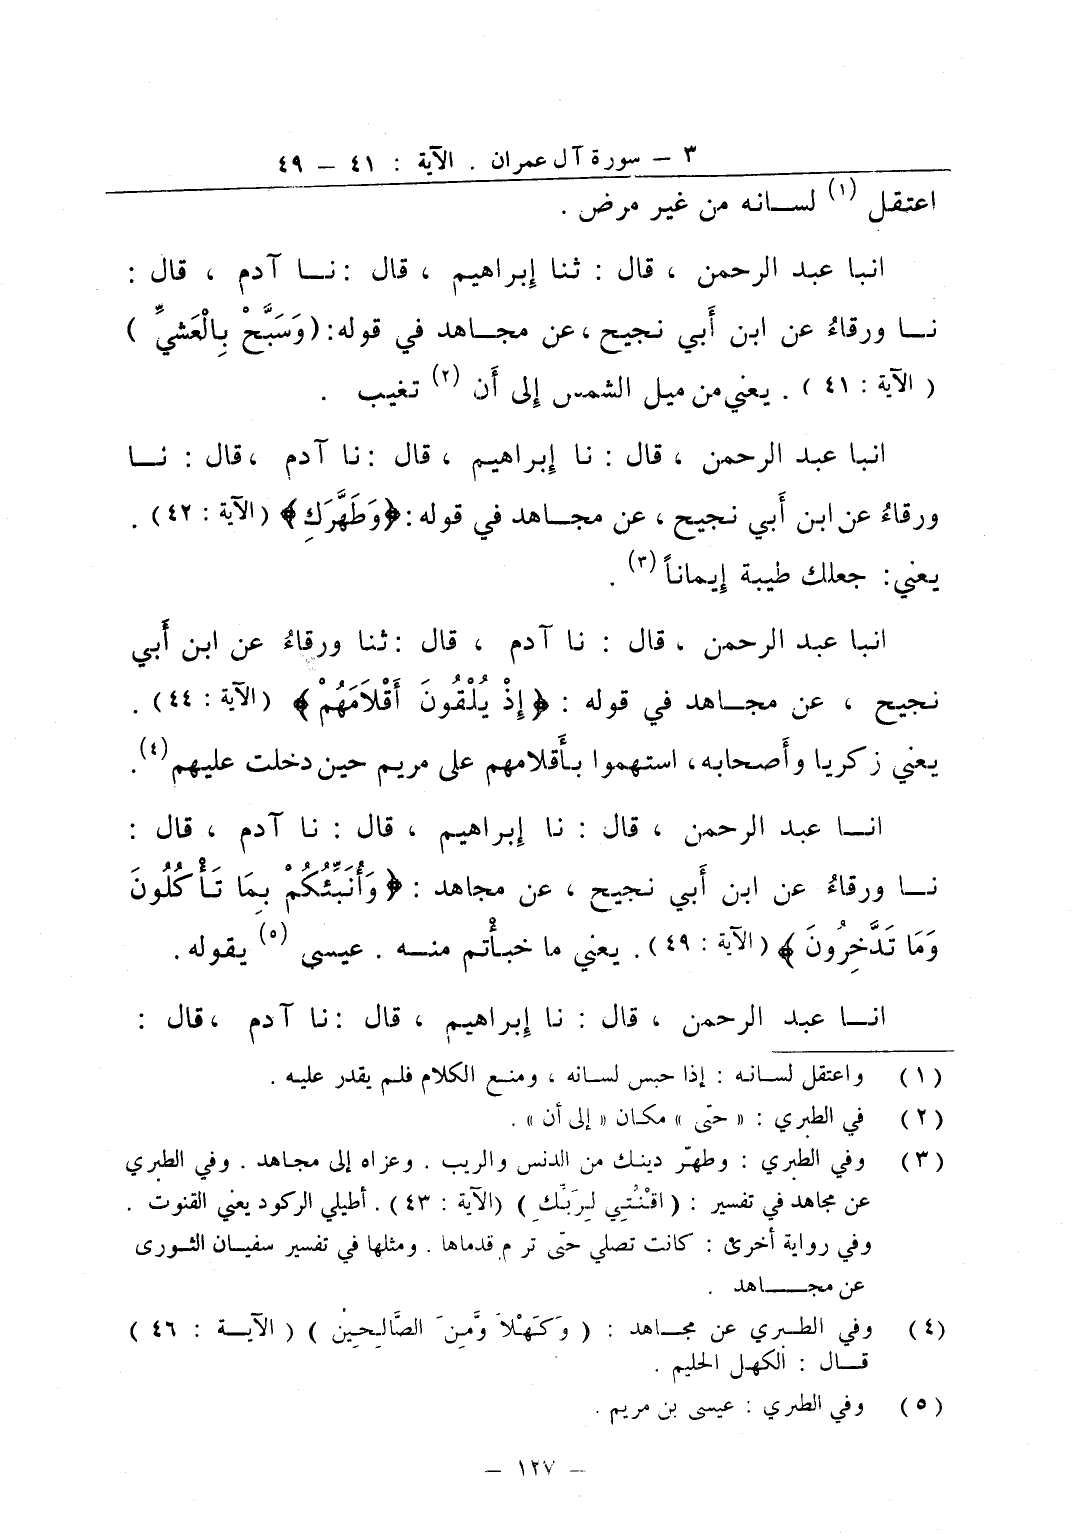 ٣ – سورة آل عمران . الآية : ٤١ – ٤٩
اعتقل (١) لســانه من غير مرض .
انبا عبد الرحمن ، قال : ثنا إبراهيم ، قال : نــا آدم ، قال :
نــا ورقاءُ عن ابن أَبي نجيح ، عن مجــاهد في قوله : (وَسَبَّحْ بِالْعَشيِّ )
( الآية : ٤١ ) . يعني من ميل الشمس إلى أَن (٢) تغيب .
انبا عبد الرحمن ، قال : نا إبراهيم ، قال : نا آدم ، قال : نــا
ورقاءُ عن ابن أَبي نجيح ، عن مجــاهد في قوله : ﴿وَطَهَّرَكِ﴾ (الآية : ٤٢) .
يعني : جعلك طيبة إيماناً (٣) .
انبا عبد الرحمن ، قال : نا آدم ، قال : ثنا ورقاءُ عن ابن أَبي
نجيح ، عن مجــاهد في قوله : ﴿ إِذْ يُلْقُونَ أَقْلَامَهُمْ ﴾ (الآية : ٤٤) .
يعني زكريا وأَصحابه، استهموا بأَقلامهم على مريم حين دخلت عليهم (٤) .
انــا عبد الرحمن ، قال : نا إبراهيم ، قال : نا آدم ، قال :
نــا ورقاءُ عن ابن أَبي نجيح ، عن مجاهد : ﴿ وَأُنَبِّئُكُمْ بِمَا تَأْكُلُونَ
وَمَا تَدَّخِرُونَ ﴾ (الآية : ٤٩) . يعني ما خبأْتم منــه . عيسى (٥) يقوله .
انــا عبد الرحمن ، قال : نا إبراهيم ، قال : نا آدم ، قال :
(١) واعتقل لسـانـه : إذا حبس لسـانه ، ومنـع الكلام فلـم يقدر عليـه .
(٢) في الطبري : « حتى » مكـان « إلى أن » .
(٣) وفي الطبري : وطهـّر دينـك من الدنس والريب . وعزاه إلى مجـاهد . وفي الطبري
عن مجاهد في تفسير : ( اقْنُتِي لِرَبِّكِ ) (الآية : ٤٣) . أطيلي الركود يعني القنوت .
وفي رواية أخرى : كانت تصلي حتى ترم قدماها . ومثلها في تفسير سفيـان الثـورى
عن مجــــاهد .
(٤) وفي الطــبري عن مجــاهد : ( وَكَهْلاً وَّمِنَ الصَّالِحِيْنَ ) ( الآيــة : ٤٦ )
قــال : الكهـل الحليم .
(٥) وفي الطبري : عيسى بن مريم .
– ١٢٧ –